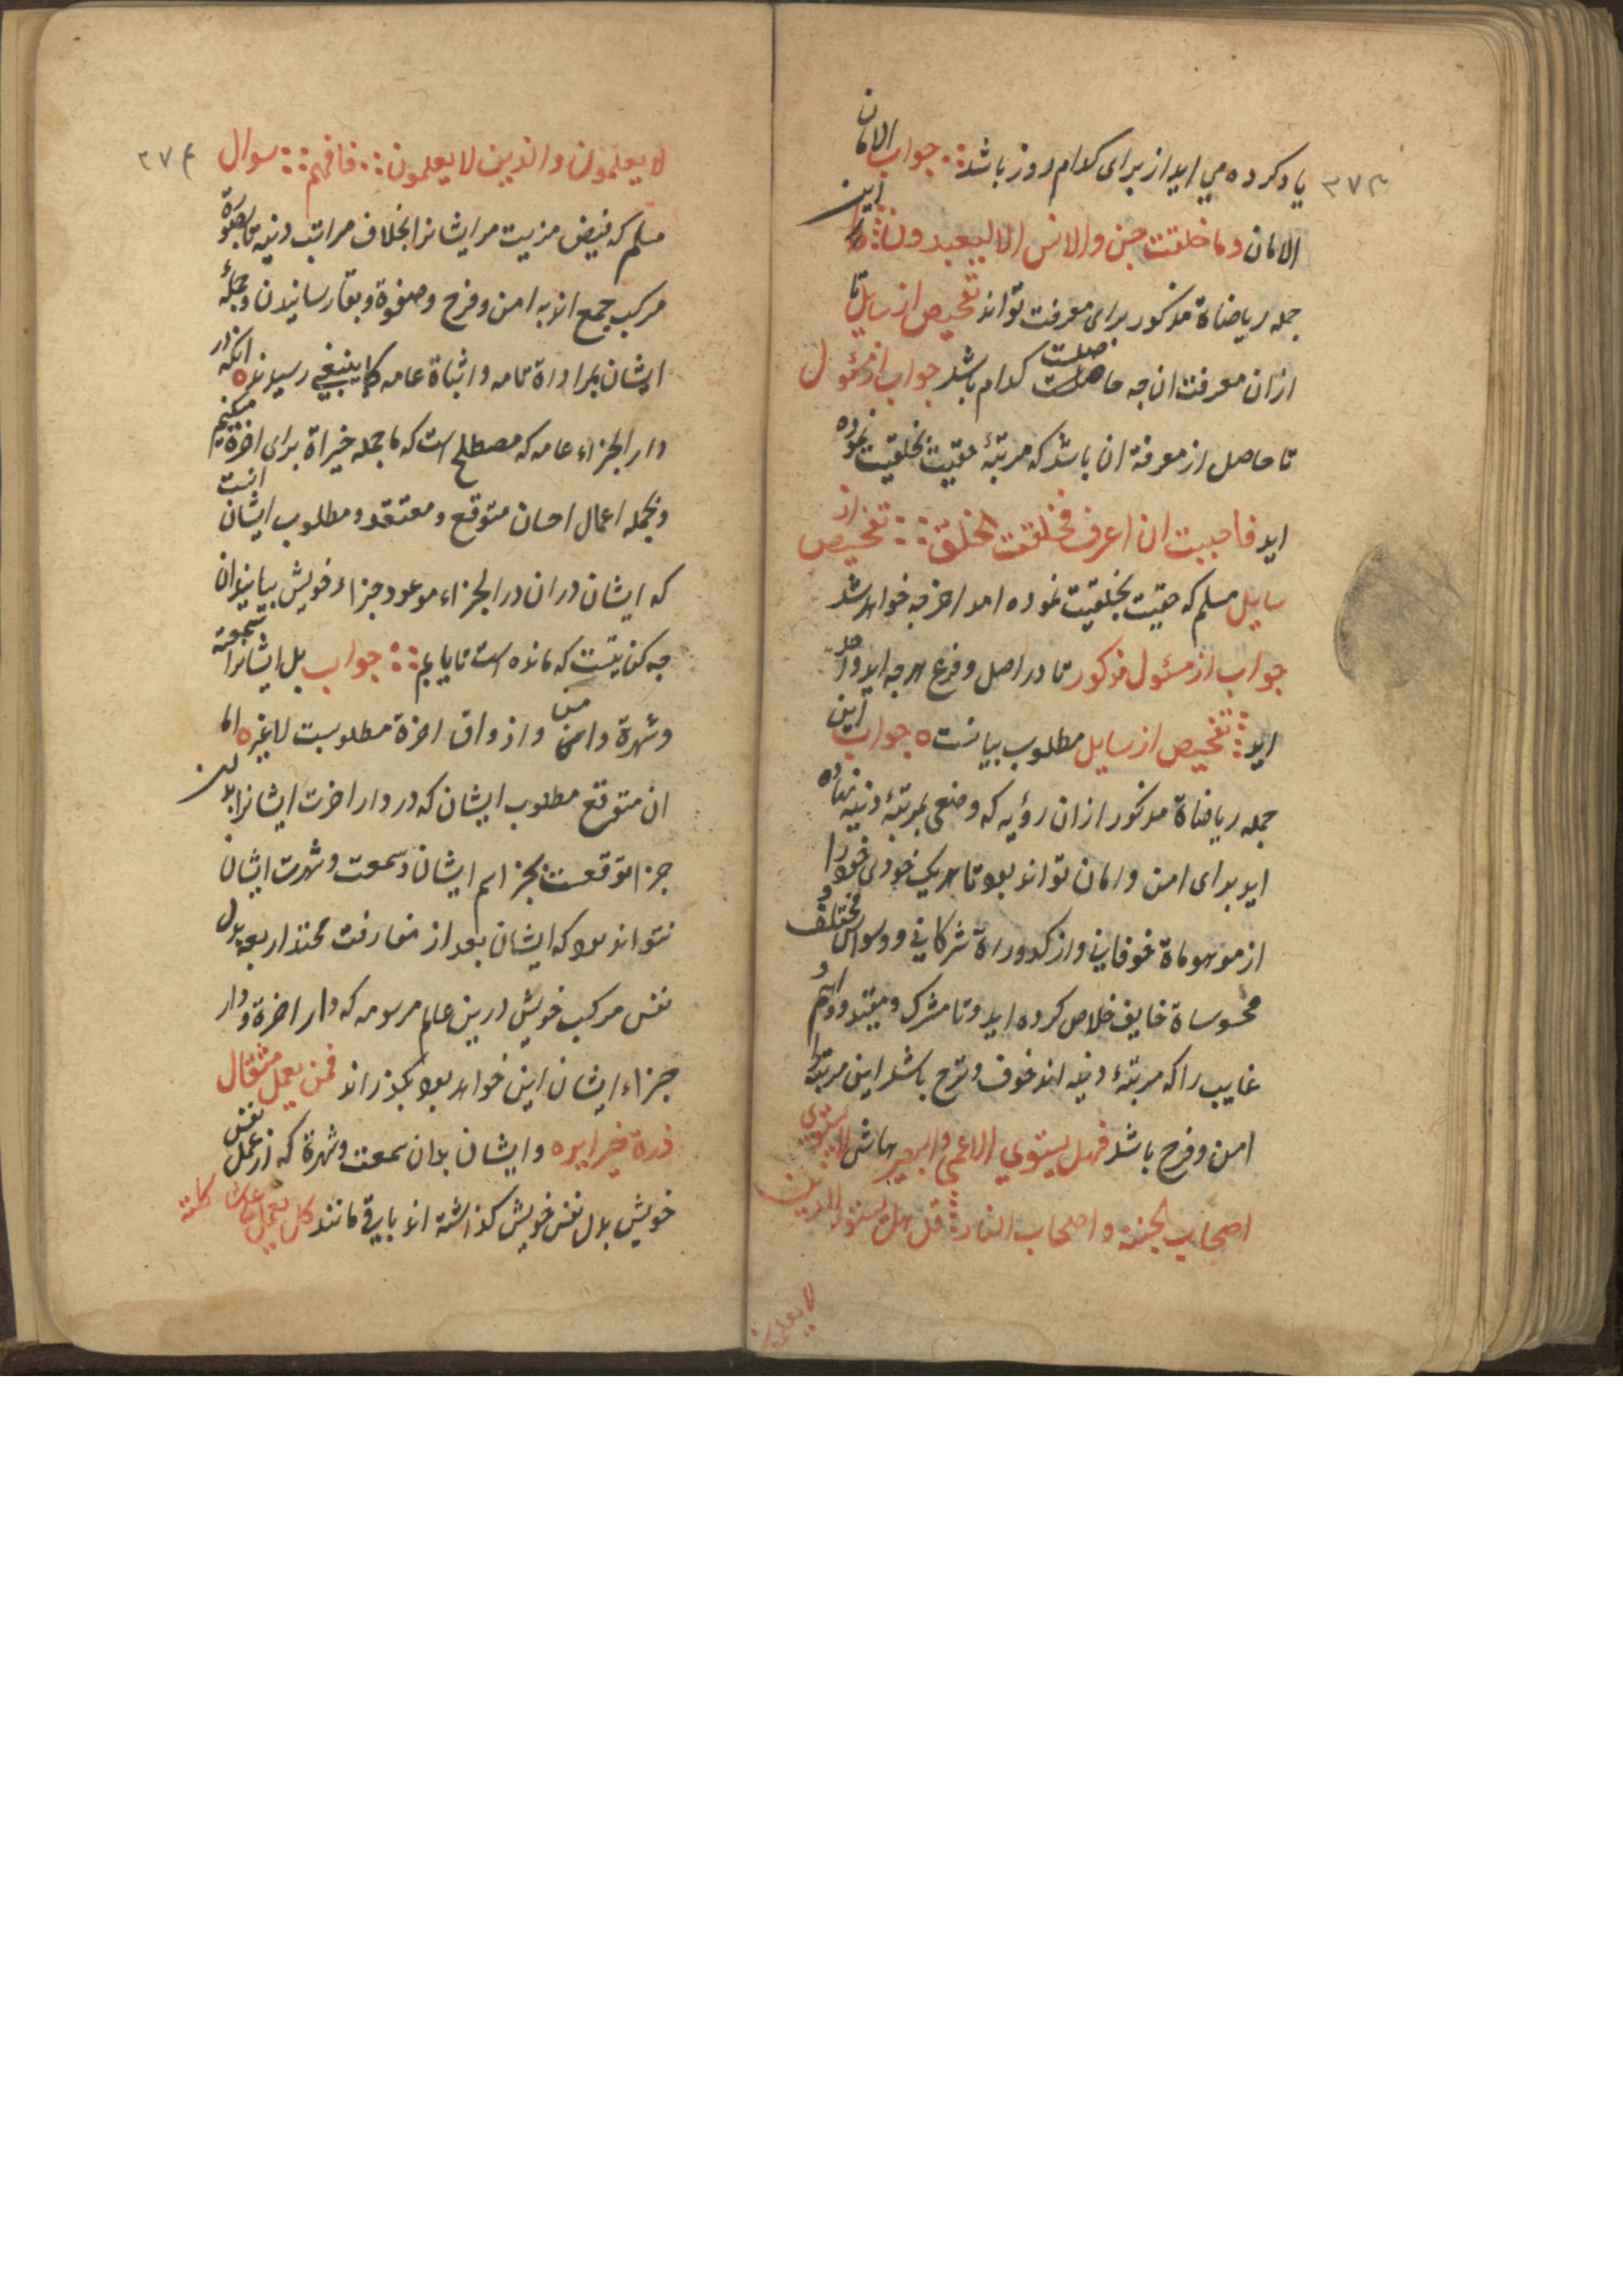 ٣٧٣
یاد کرده می اید از برای کدام روز باشد جواب الامان
الامان وما خلقت جن والانس الا لیعبدون این
جمله ریاضاة مذکور برای معرفت تواند تفحیص از سایل تا
ازان معرفت ان چه حاصلست کدام باشد جواب از مسئول
تا حاصل از معرفة ان باشد که مرتبهٔ حقیت بخلقیت نموده
اید فاحببت ان اعرف فخلقت الخلق تفحیص از
سایل مسلم که حقیت بخلقیت نموده امد اخر چه خواهد شد
جواب از مسئول مذکور تا در اصل و فرع هرچه اید واحد
اید تفحیص از سایل مطلوب بیانست جواب این
جمله ریاضاة مذکور ازان رؤیه که وضعی بمرتبهٔ دنیه نهاده
اید برای امن وامان تواند بود تا هریک خودی خود را
از موهوماة خوفانی واز کدوراة شرکانی و وسواس مختلف و
محسوساة خایف خلاص کرده اید وتا مشرک ومقید و واهم و
غایب را که مرتبهٔ دنیه اند خوف وترح باشد این مرتبه را
امن وفرح باشد فهل یستوی الاعمی والبصیر حاش لا یستوی
اصحاب الجنة واصحاب النار قل هل یستوی الذین
لا یعلمون
٣٧٤
لا یعلمون والذین لا یعلمون فافهم سوال
مسلم که فیض مزیت مر ایشانرا بخلاف مراتب دنیه بصورة
مرکب جمع اند به امن وفرح وصفوة وبقا رسانیدن وجملهٔ
ایشان بمراداة تامه واثباة عامه کما ینبغی رسیدند انکه در
دار الجزاء عامه که مصطلح است که ما جمله خیراة برای اخرة میکنیم
وجمله اعمال احسان متوقع ومعتقد ومطلوب ایشان انست
که ایشان دران در الجزاء موعود جزاء خویش بیابند ان
چه کنایتست که مانده است تا یابم جواب بل ایشانرا سمعة
وشهرة وامن واذواق اخرة مطلوبست لا غیره اما
ان متوقع مطلوب ایشان که در دار اخرت ایشانرا بدین
جزا توقعست بجز اسم ایشان وسمعت وشهرت ایشان
نتواند بود که ایشان بعد از مفارقت اربعه بدل
نفس مرکب خویش درین عالم مرسومه که دار اخرة ودار
جزاء ایشان این خواهد بود بگذراند فمن یعمل مثقال
ذرة خیرا یره وایشان بدان سمعت وشهرة که از عمل نفس
خویش بدل نفس خویش گذاشته اند باقی مانند کل یعمل علی شاکلته